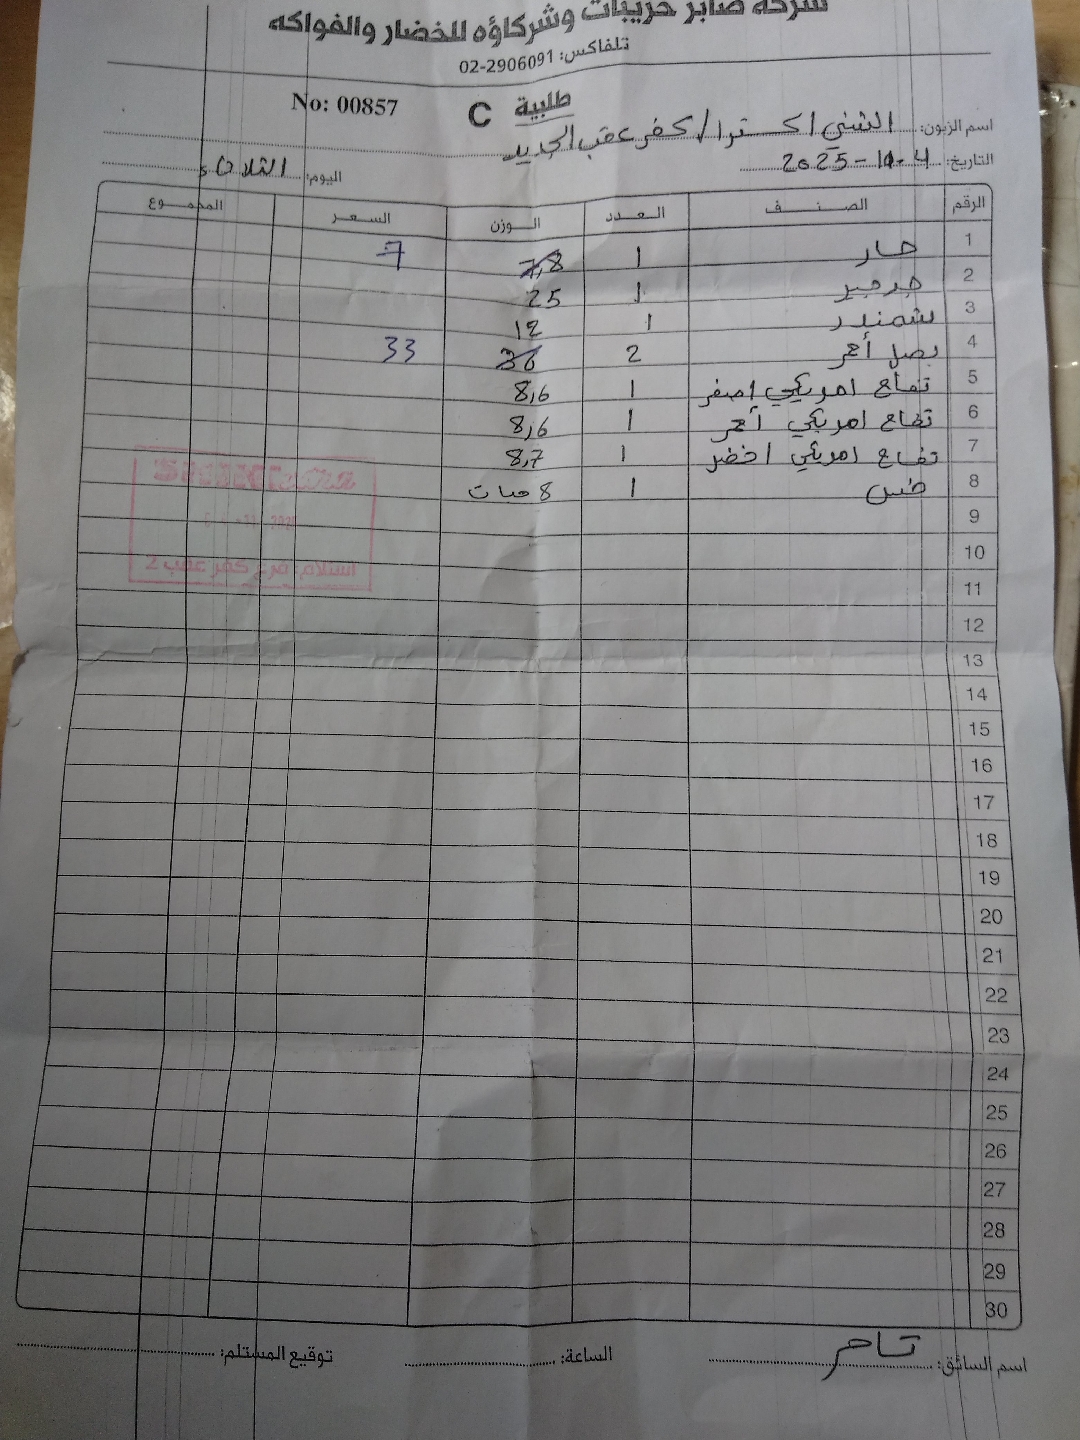 شركة صابر حريبات وشركاؤه للخضار والفواكه
تلفاكس: 02-2906091
No: 00857 C طلبية
اسم الزبون: الشني اكسترا / كفر عقب الجديد
التاريخ: 4-11-2025 اليوم: الثلاثاء
الرقم الصنف العدد الوزن السعر المجموع
1 حار 1 7,8 7
2 جرجير 1 25
3 شمندر 1 12
4 بصل أحمر 2 36 33
5 تفاح امريكي اصفر 1 8,6
6 تفاح امريكي أحمر 1 8,6
7 تفاح امريكي اخضر 1 8,7
8 خس 1 8 حبات
9
10
11
12
13
14
15
16
17
18
19
20
21
22
23
24
25
26
27
28
29
30
استلام: فرع كفر عقب 2
اسم السائق: الساعة: توقيع المستلم: